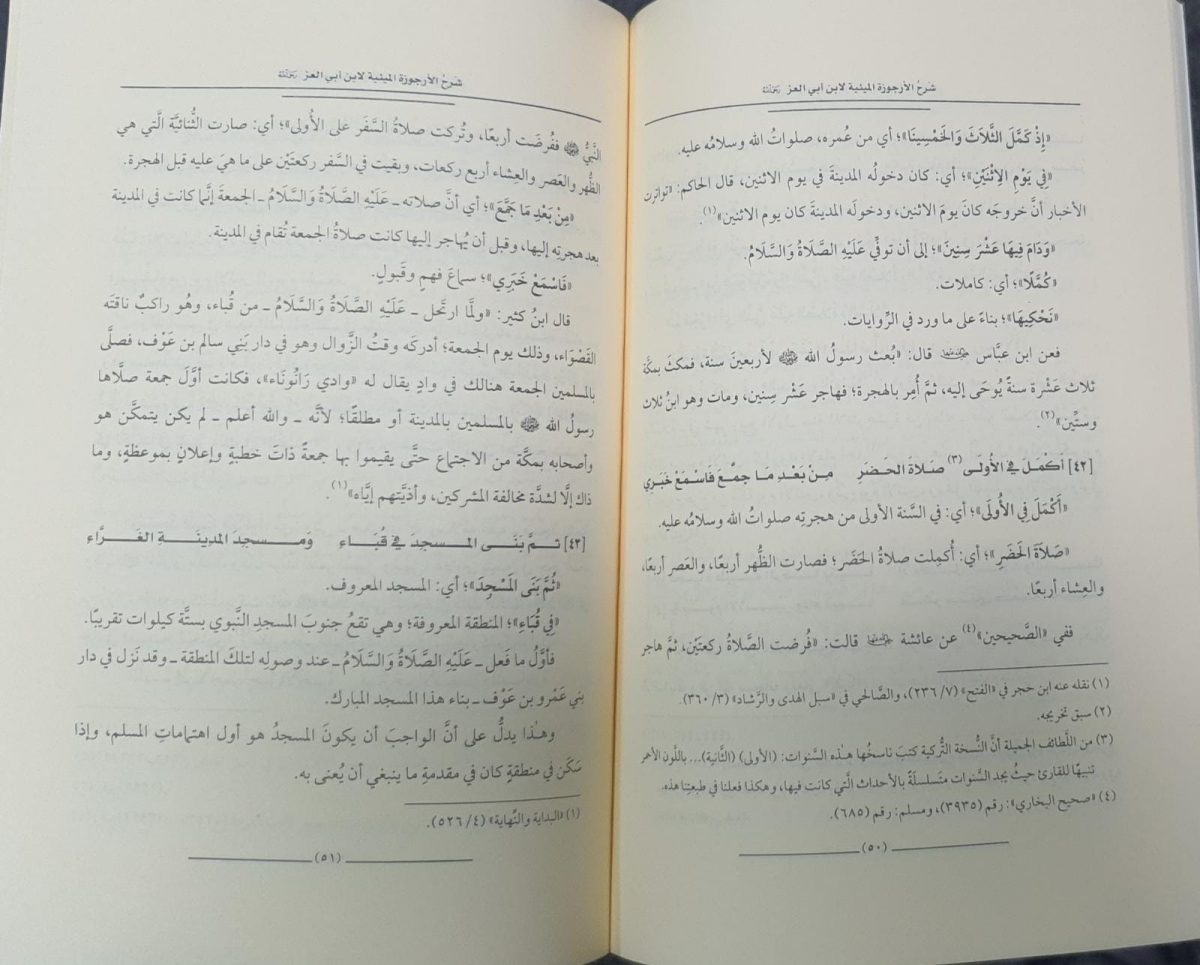 شَرحُ الأرجوزة الميئية لابن أبي العز رَحِمَهُ اللهُ
«إِذْ كَمَّلَ الثَّلَاثَ وَالخَمْسِينَا»؛ أي من عُمره، صلواتُ الله وسلامُه عليه.
«فِي يَوْمِ الِاثْنَيْنِ»؛ أي: كان دخولُه المدينةَ في يوم الاثنين، قال الحاكم: «تواترت
الأخبار أنَّ خروجَه كانَ يومَ الاثنين، ودخولَه المدينةَ كان يوم الاثنين»(١).
«وَدَامَ فِيهَا عَشْرَ سِنِينَ»؛ إلى أن توفِّي عَلَيْهِ الصَّلَاةُ وَالسَّلَامُ.
«كُمَّلًا»؛ أي: كاملات.
«نَحْكِيهَا»؛ بناءً على ما ورد في الرِّوايات.
فعن ابن عبَّاس رَضِيَ اللهُ عَنْهُمَا قال: «بُعث رسولُ الله ﷺ لأربعينَ سنة، فمكثَ بمكَّة
ثلاث عَشْرة سنةً يُوحَى إليه، ثمَّ أُمِر بالهجرة؛ فهاجر عَشْر سِنين، ومات وهو ابنُ ثلاث
وستِّين»(٢).
[٤٢] أَكْمَلَ فِي الأُولَى(٣) صَلَاةَ الحَضَرِ مِنْ بَعْدِ مَا جمَّعَ فَاسْمَعْ خَبَرِي
«أَكْمَلَ فِي الأُولَى»؛ أي: في السَّنة الأولى من هجرتِه صلواتُ الله وسلامُه عليه.
«صَلَاةَ الحَضَرِ»؛ أي: أُكمِلت صلاةُ الحَضَر؛ فصارت الظُّهر أربعًا، والعَصر أربعًا،
والعِشاء أربعًا.
ففي «الصَّحيحين»(٤) عن عائشة رَضِيَ اللهُ عَنْهَا قالت: «فُرضت الصَّلاةُ ركعتَيْن، ثمَّ هاجر
(١) نقله عنه ابن حجر في «الفتح» (٧/ ٢٣٦)، والصَّالحي في «سبل الهدى والرَّشاد» (٣/ ٣٦٠).
(٢) سبق تخريجه.
(٣) من اللَّطائف الجميلة أنَّ النُّسخة التُّركية كتبَ ناسخُها هٰذه السَّنوات: (الأولى) (الثَّانية)... باللَّون الأحمر
تنبيهًا للقارئ حيثُ يجد السَّنوات متَسلسلَةً بالأحداث الَّتي كانت فيها، وهكذا فعلنا في طبعتِنا هذه.
(٤) «صحيح البخاري»: رقم (٣٩٣٥)، ومسلم: رقم (٦٨٥).
(٥٠)
شَرحُ الأرجوزة الميئية لابن أبي العز رَحِمَهُ اللهُ
النَّبيُّ ﷺ ففُرضَت أربعًا، وتُركت صلاةُ السَّفَر على الأُولى»؛ أي: صارت الثُّنائيَّة الَّتي هي
الظُّهر والعَصر والعِشاء أربع ركعات، وبقيت في السَّفر ركعتَيْن على ما هيَ عليه قبل الهجرة.
«مِنْ بَعْدِ مَا جَمَّعَ»؛ أي أنَّ صلاته ـ عَلَيْهِ الصَّلَاةُ وَالسَّلَامُ ـ الجمعةَ إنَّما كانت في المدينة
بعد هجرتِه إليها، وقبل أن يُهاجر إليها كانت صلاةُ الجمعة تُقام في المدينة.
«فَاسْمَعْ خَبَرِي»؛ سماعَ فهمٍ وقَبولٍ.
قال ابنُ كثير: «ولمَّا ارتحل ـ عَلَيْهِ الصَّلَاةُ وَالسَّلَامُ ـ من قُباء، وهُو راكبٌ ناقتَه
القَصْوَاء، وذلك يوم الجمعة؛ أدركَه وقتُ الزَّوال وهو في دار بَنِي سالم بن عَوْف، فصلَّى
بالمسلمين الجمعة هنالك في وادٍ يقال له «وادي رَانُونَاء»، فكانت أوَّلَ جمعة صلَّاها
رسولُ الله ﷺ بالمسلمين بالمدينة أو مطلقًا؛ لأنَّه ـ والله أعلم ـ لم يكن يتمكَّن هو
وأصحابه بمكَّة من الاجتماع حتَّى يقيموا بها جمعةً ذاتَ خطبةٍ وإعلانٍ بموعظةٍ، وما
ذاك إلَّا لشدَّة مخالفة المشركين، وأذيَّتهم إيَّاه»(١).
[٤٣] ثُمَّ بَنَى المَسْجِدَ فِي قُبَاءِ وَمَسْجِدَ المَدِينَةِ الغَرَّاءِ
«ثُمَّ بَنَى المَسْجِدَ»؛ أي: المسجد المعروف.
«فِي قُبَاءِ»؛ المنطقة المعروفة؛ وهي تقعُ جنوبَ المسجدِ النَّبوي بستَّة كيلوات تقريبًا.
فأوَّلُ ما فَعل ـ عَلَيْهِ الصَّلَاةُ وَالسَّلَامُ ـ عند وصوله لتلكَ المنطقة ـ وقد نَزل في دار
بني عَمْرو بن عَوْف ـ بناء هذا المسجد المبارك.
وهٰذا يدلُّ على أنَّ الواجبَ أن يكونَ المسجدُ هو أول اهتماماتِ المسلم، وإذا
سَكَن في منطقةٍ كان في مقدمةِ ما ينبغي أن يُعنى به.
(١) «البداية والنِّهاية» (٤/ ٥٢٦).
(٥١)